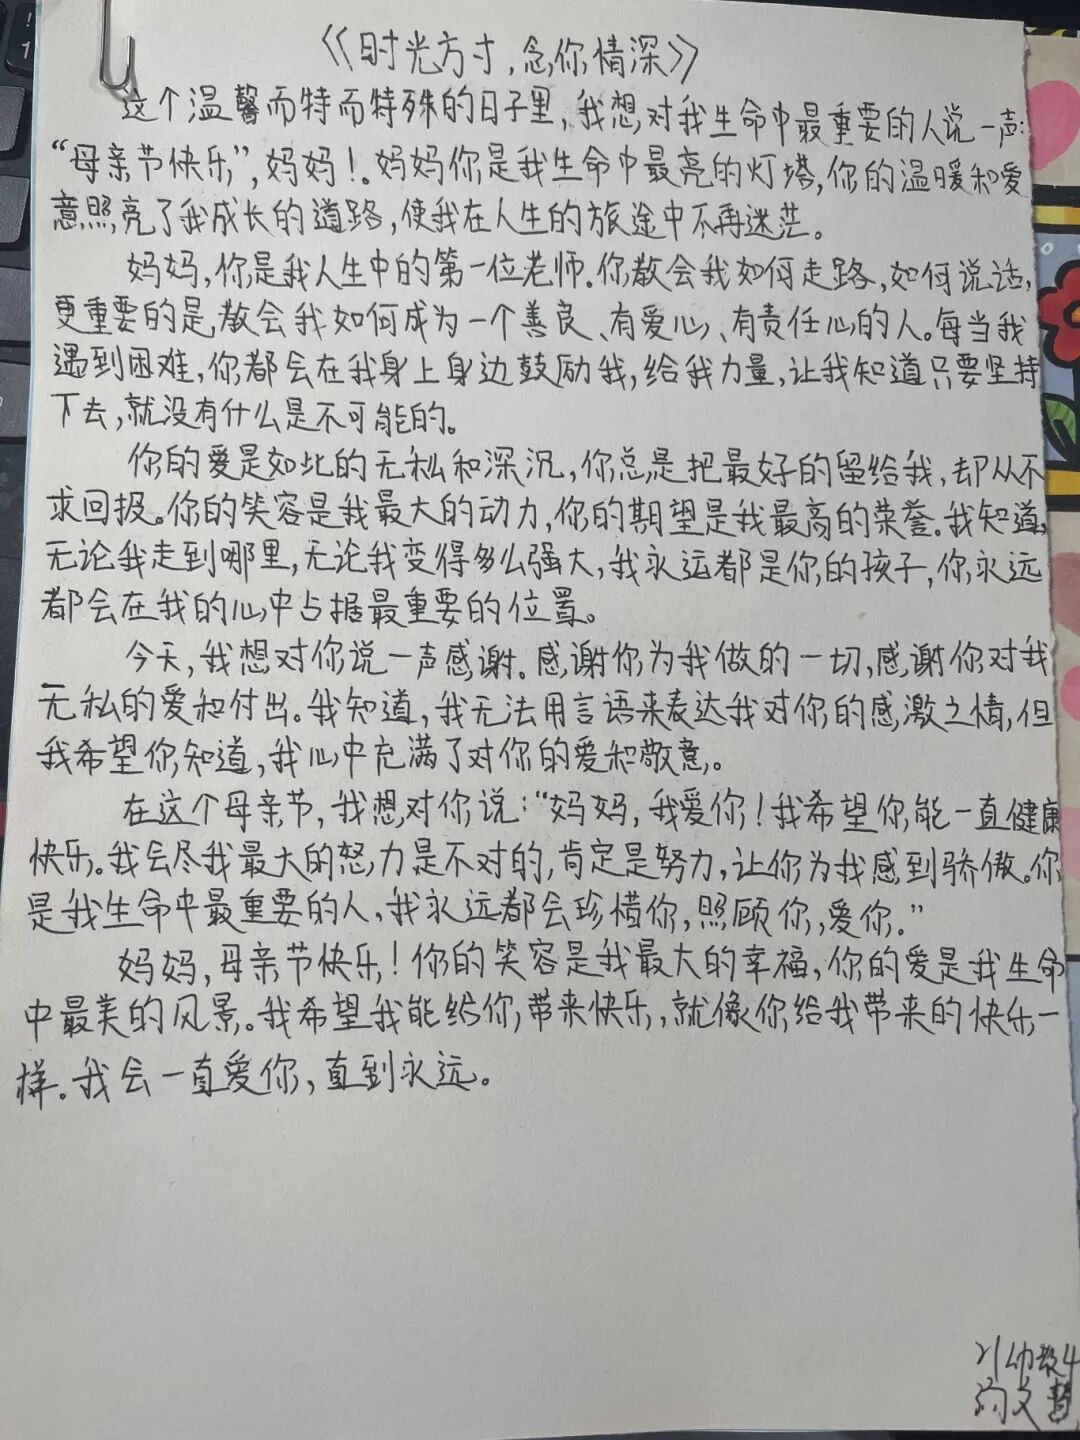 《时光方寸,念你情深》
这个温馨而特而特殊的日子里,我想对我生命中最重要的人说一声:
“母亲节快乐”,妈妈!。妈妈你是我生命中最亮的灯塔,你的温暖和爱
意照亮了我成长的道路,使我在人生的旅途中不再迷茫。
妈妈,你是我人生中的第一位老师.你教会我如何走路,如何说话,
更重要的是教会我如何成为一个善良、有爱心、有责任心的人。每当我
遇到困难,你都会在我身上身边鼓励我,给我力量,让我知道只要坚持
下去,就没有什么是不可能的。
你的爱是如此的无私和深沉,你总是把最好的留给我,却从不
求回报。你的笑容是我最大的动力,你的期望是我最高的荣誉。我知道,
无论我走到哪里,无论我变得多么强大,我永远都是你的孩子,你永远
都会在我的心中占据最重要的位置。
今天,我想对你说一声感谢.感谢你为我做的一切,感谢你对我
无私的爱和付出。我知道,我无法用言语来表达我对你的感激之情,但
我希望你知道,我心中充满了对你的爱和敬意。
在这个母亲节,我想对你说:“妈妈,我爱你!我希望你能一直健康
快乐。我会尽我最大的怒力是不对的,肯定是努力,让你为我感到骄傲。你
是我生命中最重要的人,我永远都会珍惜你,照顾你,爱你.”
妈妈,母亲节快乐!你的笑容是我最大的幸福,你的爱是我生命
中最美的风景。我希望我能给你带来快乐,就像你给我带来的快乐一
样。我会一直爱你,直到永远。
21幼教4